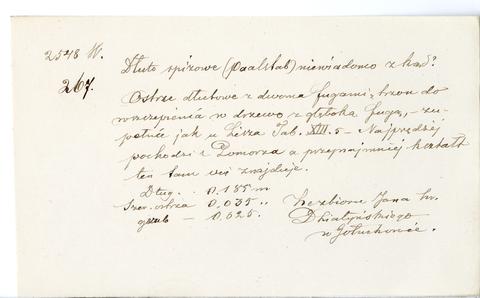 2548 W.
267.
Dłuto spiżowe (Paalstab) niewiadomo z kąd?
Ostrze dłutowe z dwoma fugami, trzon do
wszczepienia w drzewo z głęboką fugą, – zu-
pełnie jak u Lisza Tab. XIII. 5 – Najprędzej
pochodzi z Pomorza a przynajmniej kształt
ten tam się znajduje.
Dług. – 0.185 m
Szer. ostrza 0.035 ..
grub – 0.025.
Ze zbioru Jana hr.
Działyńskiego
w Gołuchowie.